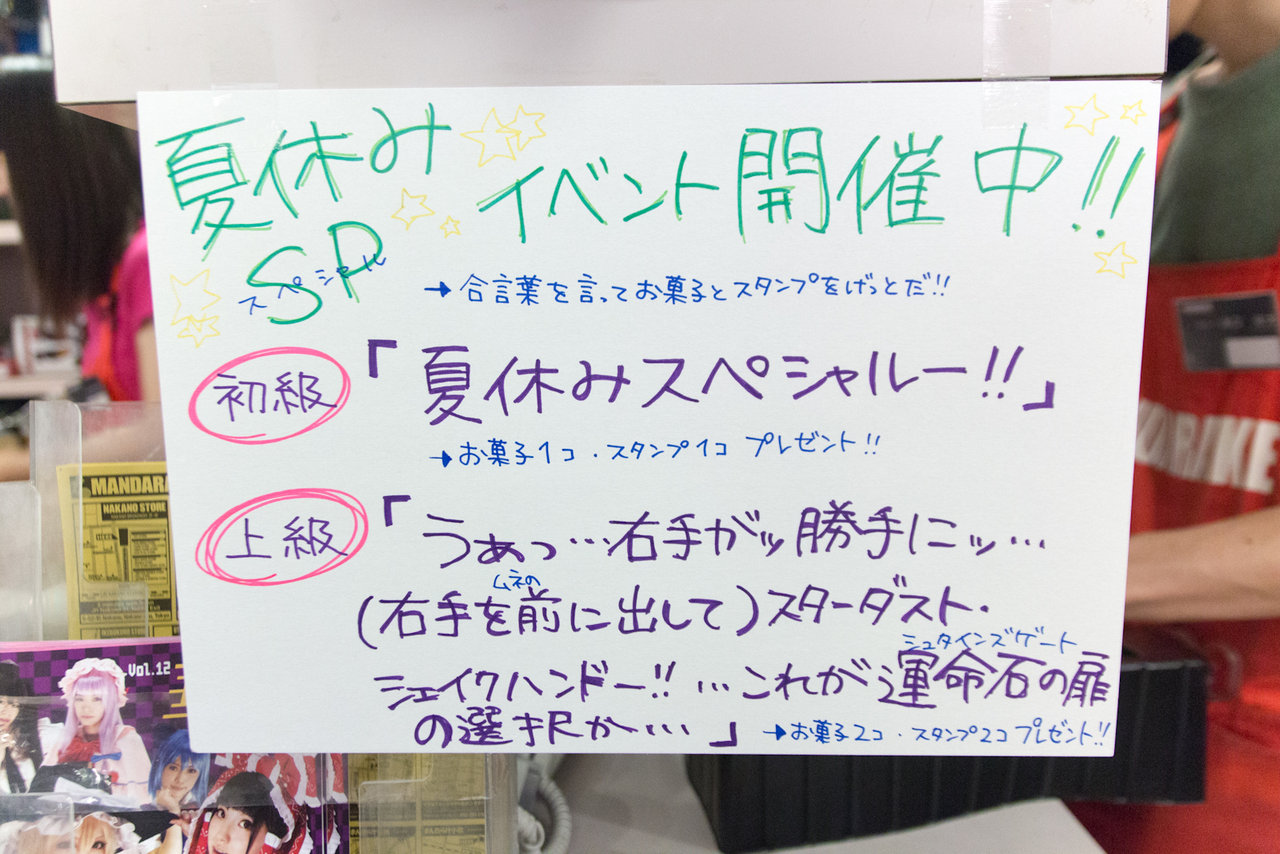 夏休み
SP
スペシャル
イベント開催中!!
→合言葉を言ってお菓子とスタンプをげっとだ!!
初級
「夏休みスペシャルー!!」
→お菓子1コ・スタンプ1コ プレゼント!!
上級
「うぁっ…右手がッ勝手にッ…
ムネの
(右手を前に出して)スターダスト・
シュタインズゲート
シェイクハンドー!!…これが運命石の扉
の選択か…」
→お菓子2コ・スタンプ2コ プレゼント!!
MANDARA
NAKANO STORE
Vol.12